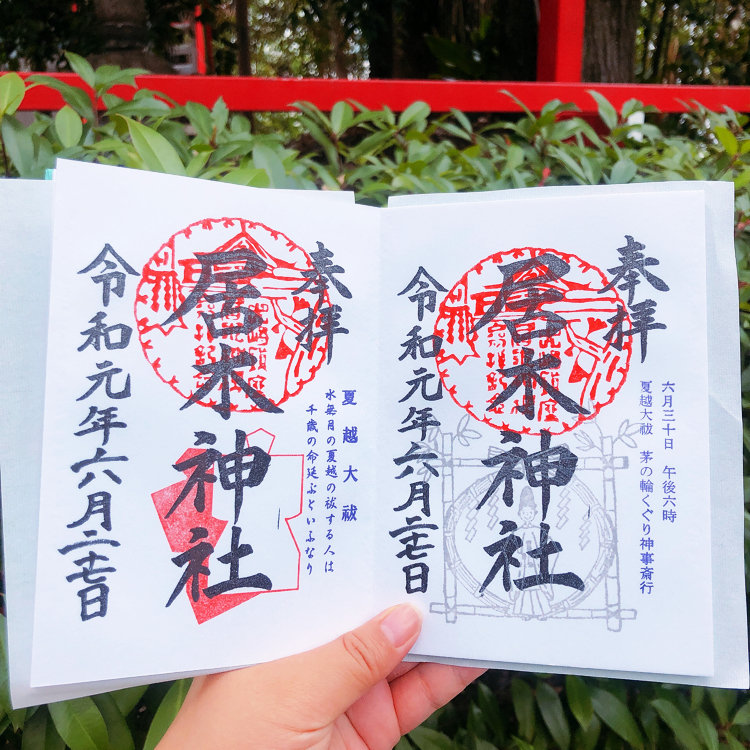 六月三十日 午後六時
夏越大祓 茅の輪くぐり神事斎行
奉拝
居木神社
令和元年六月二七日
奉拝
夏越大祓
水無月の夏越の祓する人は
千歳の命延ぶといふなり
居木神社
令和元年六月二七日